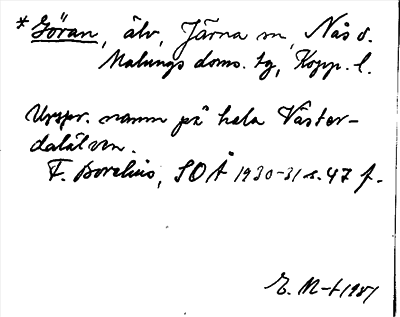 * Göran, älv, Järna sn, Nås o.
Malungs doms. tg, Kopp. l.
Urspr. namn på hela Väster-
dalälven.
F. Borelius, SOÅ 1930-31 s. 47 f.
E. M-t 1987